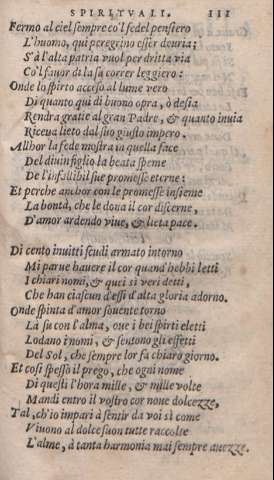 SPIRITUALI. 111
Fermo al ciel sempre co'l fedel pensiero
L'huomo, qui peregrino esser deuria;
S'à l'alta patria vuol per dritta via
Co'l fauor di la sù correr leggiero:
Onde lo spirto acceso al lume vero
Di quanto quì di buono opra, ò desia
Rendra gratie al gran Padre, & quanto inuia
Riceua lieto dal suo giusto impero.
Allhor la fede mostra in quella face
Del diuin figlio la beata speme
De l'infallibil sue promesse eterne:
Et perche anchor con le promesse insieme
La bontà, che le dona il cor discerne,
D'amor ardendo viue, & lieta pace.
Di cento inuitti scudi armato intorno
Mi parue hauere il cor quand'hebbi letti
I chiari nomi, & quei sì veri detti,
Che han ciascun d'essi d'alta gloria adorno.
Onde spinta d'amor souente torno
Là sù con l'alma, oue i bei spirti eletti
Lodano i nomi, & sentono gli effetti
Del Sol, che sempre lor fa chiaro giorno.
Et così spesso il prego, che ogni nome
Di questi l'hora mille, & mille volte
Mandi entro il vostro cor noue dolcezze,
Tal, ch'io impari à sentir da voi sì come
Viuono al dolce suon tutte raccolte
L'alme, à tanta harmonia mai sempre auezze.